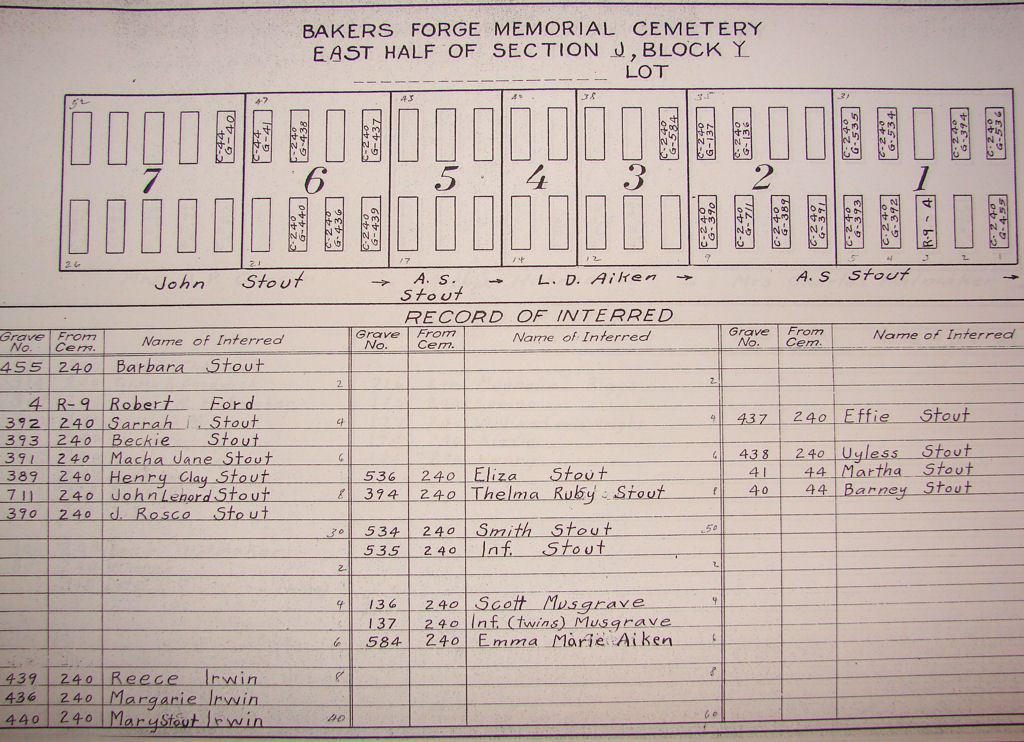 BAKERS FORGE MEMORIAL CEMETERY
EAST HALF OF SECTION J, BLOCK Y
LOT
52 47 43 42 38 35 31
C-44 G-40 C-44 G-41 C-240 G-438 C-240 G-437 C-240 G-584 C-240 G-137 C-240 G-136 C-240 G-535 C-240 G-534 C-240 G-394 C-240 G-536
7 6 5 4 3 2 1
C-240 G-440 C-240 G-436 C-240 G-439 C-240 G-390 C-240 G-711 C-240 G-389 C-240 G-391 C-240 G-393 C-240 G-392 R-9-4 C-240 G-455
26 21 17 14 12 9 5 4 3 2 1
John Stout → A. S. Stout → L. D. Aiken → A. S Stout →
RECORD OF INTERRED
Grave No. From Cem. Name of Interred Grave No. From Cem. Name of Interred Grave No. From Cem. Name of Interred
455 240 Barbara Stout
2 2
4 R-9 Robert Ford
392 240 Sarrah Stout 4 4 437 240 Effie Stout
393 240 Beckie Stout
391 240 Macha Jane Stout 6 6 438 240 Uyless Stout
389 240 Henry Clay Stout 536 240 Eliza Stout 41 44 Martha Stout
711 240 John Lenord Stout 8 394 240 Thelma Ruby Stout 8 40 44 Barney Stout
390 240 J. Rosco Stout
30 534 240 Smith Stout 50
535 240 Inf. Stout
2 2
4 136 240 Scott Musgrave 4
137 240 Inf. (twins) Musgrave
6 584 240 Emma Marie Aiken 6
439 240 Reece Irwin 8 8
436 240 Margarie Irwin
440 240 Mary Stout Irwin 40 60